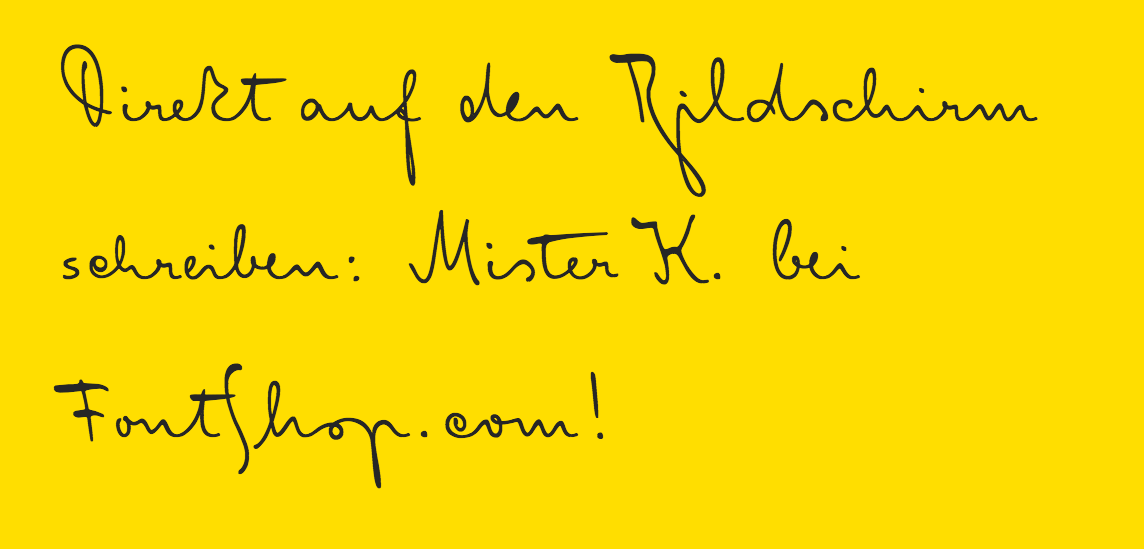 Direkt auf den Bildschirm
schreiben: Mister K. bei
FontShop.com!